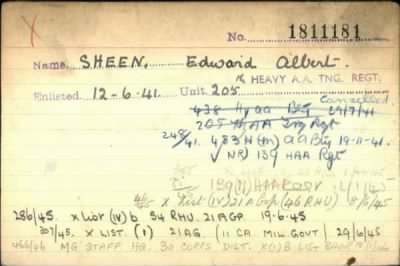 X
No. 1811181
Name. SHEEN. Edward Albert.
HEAVY A.A. TNG. REGT.
Enlisted. 12-6-41. Unit. 205
Cancelled
438 Hy aa Bty 29/7/41
205 HAA Trg Regt
248/41. 483 H(M) AA Bty 19-11-41.
NR) 139 HAA Rgt
X list (IV) 21 A Gp (46 RHU) 8/6/45
286/45. X LIST (IV) b 54 RHU. 21 AGP 19.6.45
307/45. X LIST. (1) 21 AG. (11 CA. MIL GOVT) 29/6/45
466/46 MG STAFF HQ. 30 CORPS DIST. X(1)B LIST